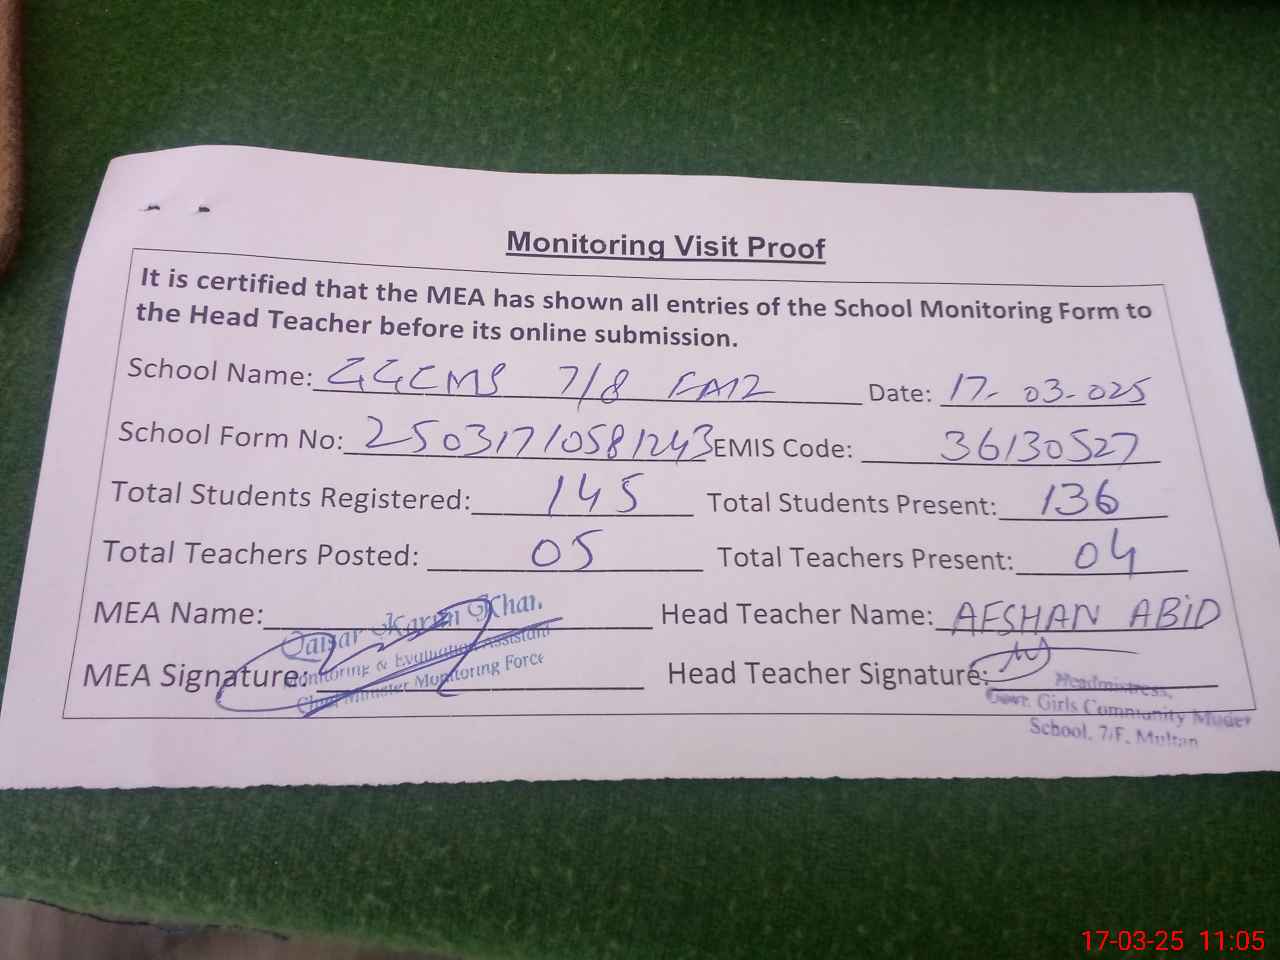 Monitoring Visit Proof
It is certified that the MEA has shown all entries of the School Monitoring Form to
the Head Teacher before its online submission.
School Name: GGCMS 7/8 FAIZ Date: 17-03-025
School Form No: 25031710581243 EMIS Code: 36130527
Total Students Registered: 145 Total Students Present: 136
Total Teachers Posted: 05 Total Teachers Present: 04
MEA Name: Qaisar Karim Khan Head Teacher Name: AFSHAN ABID
Monitoring & Evaluation Assistant
MEA Signature: Head Teacher Signature:
Chief Minister Monitoring Force
Headmistress,
Govt. Girls Community Model
School. 7/F, Multan
17-03-25 11:05